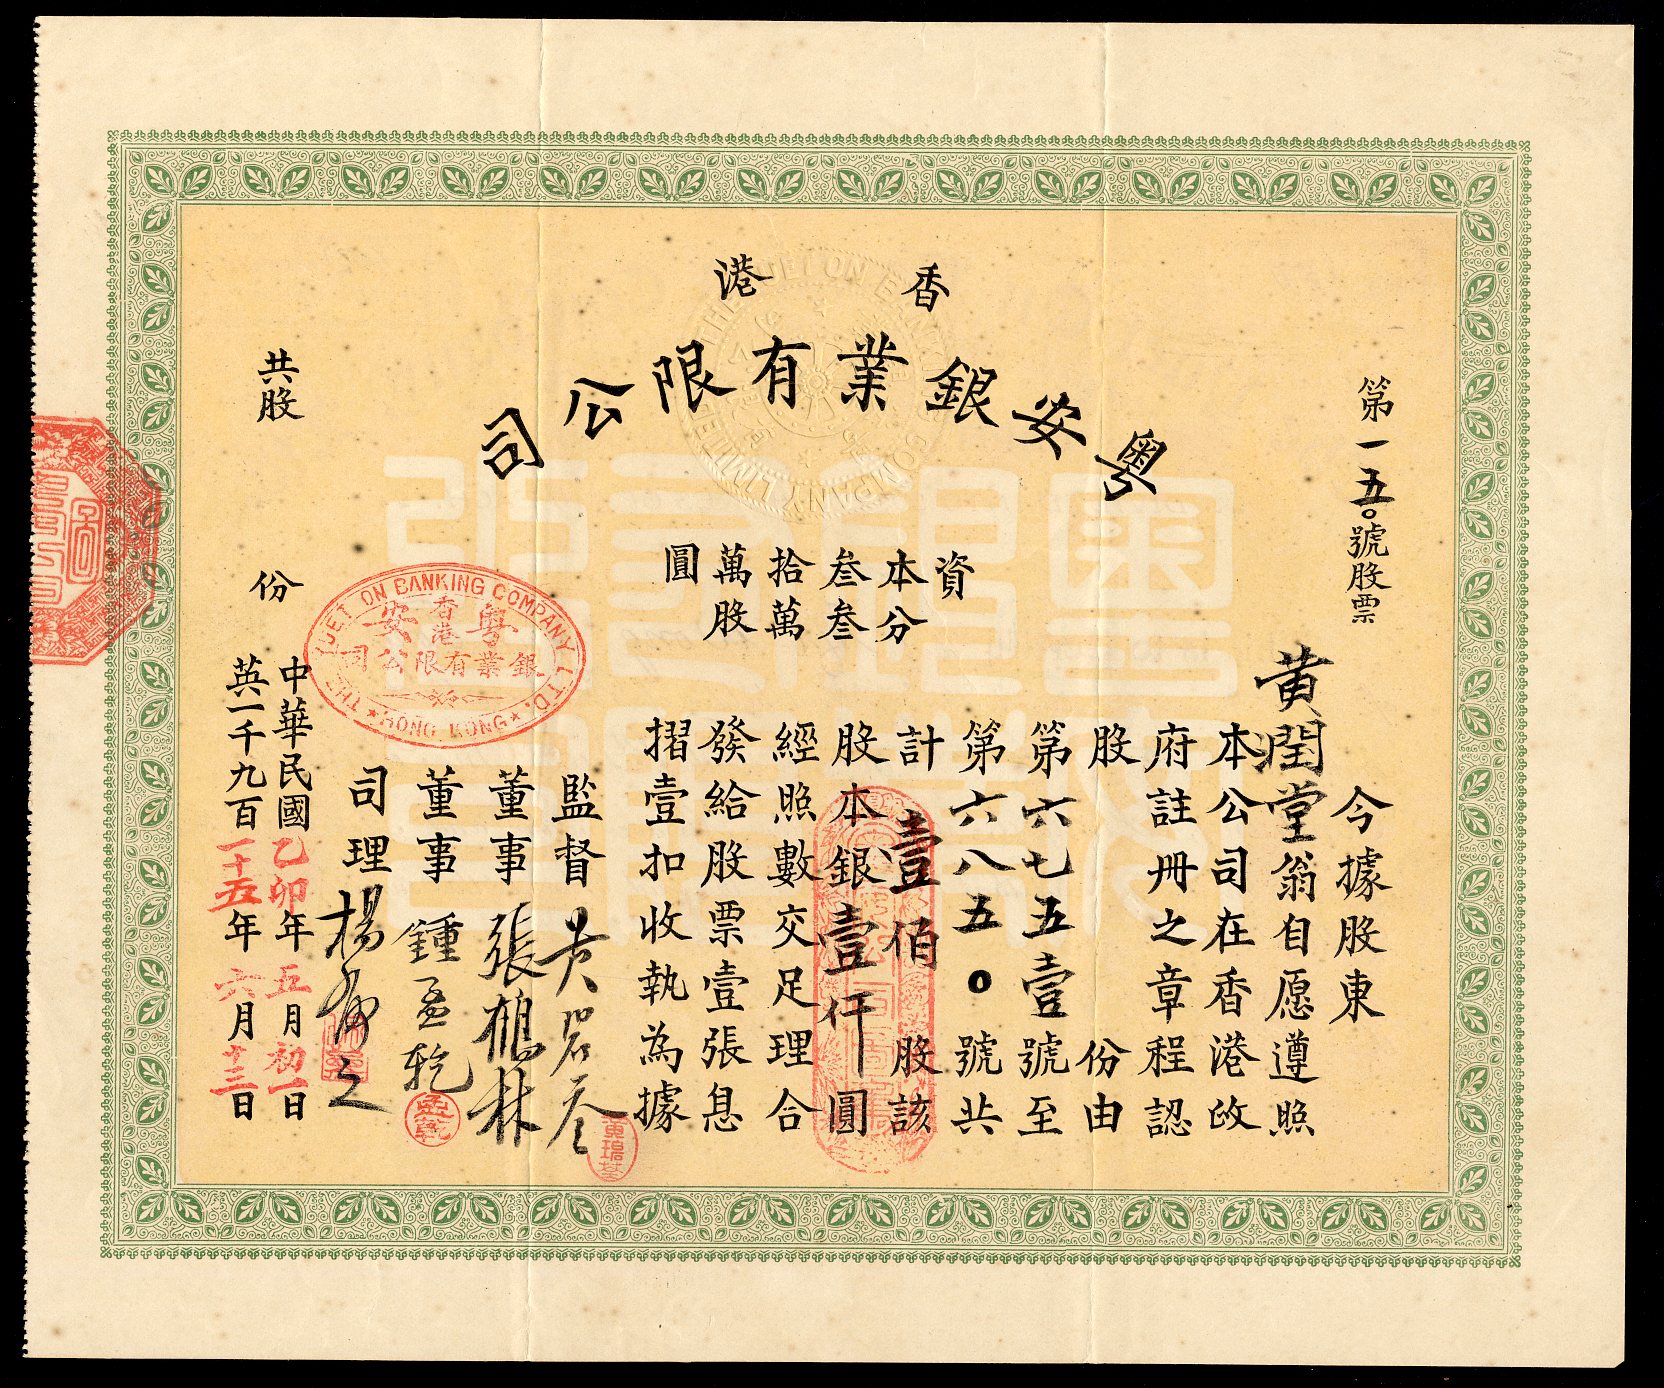 香港
粵安銀業有限公司
第一五〇號股票
資
本分
叁叁
拾萬
萬股
圓
今據股東
黃潤堂翁自愿遵照
本公司在香港政
府註冊之章程認
股份由
第六七五壹號至
第六八五〇號共
計壹佰股該
股本銀壹仟圓
經照數交足理合
發給股票壹張息
摺壹扣收執為據
監督
董事 張鶴林
董事 鍾孟乾
司理 楊
中華民國乙卯年五月初一日
英一千九百一十五年六月十三日
共股份
THE YUET ON BANKING COMPANY LTD.
粵香港安
銀業有限公司
★ HONG KONG ★
THE YUET ON BANKING COMPANY LIMITED
孟乾